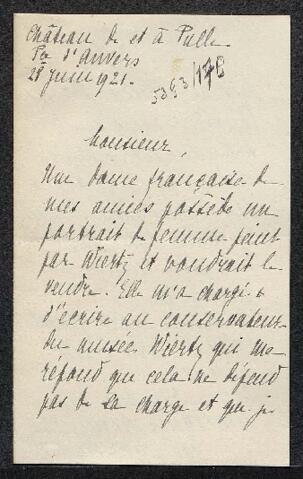 Château de et à Pulle
Pce d'Anvers
28 juin 1921.
5393/178
Monsieur,
Une dame française de
mes amies possède un
portrait de femme peint
par Wiertz et voudrait le
vendre. Elle m'a chargée
d'écrire au conservateur
du musée Wiertz qui me
répond que cela ne dépend
pas de sa charge et que je